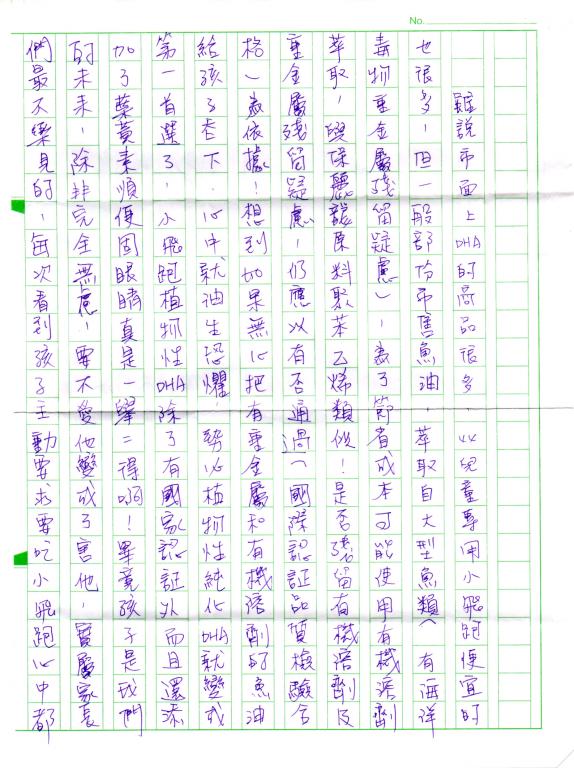 No.
雖說市面上DHA的商品很多,以兒童專用小飛跑便宜的
也很多,但一般部份市售魚油,萃取自大型魚類(有海洋
毒物、重金屬殘留疑慮),為了節省成本可能使用有機溶劑
萃取,與保麗龍原料聚苯乙烯類似!是否殘留有機溶劑及
重金屬殘留疑慮,仍應以有否通過(國際認証品質檢驗合
格)為依據!想到如果無心把有重金屬和有機溶劑的魚油
給孩子吞下,心中就油生恐懼,勢必植物性純化DHA就變成
第一首選了,小飛跑植物性DHA除了有國家認証外而且還添
加了葉黃素順便固眼睛真是一舉二得啊!畢竟孩子是我們
的未來,除非完全無慮,要不愛他變成了害他,實屬家長
們最不樂見的,每次看到孩子主動要求要吃小飛跑心中都